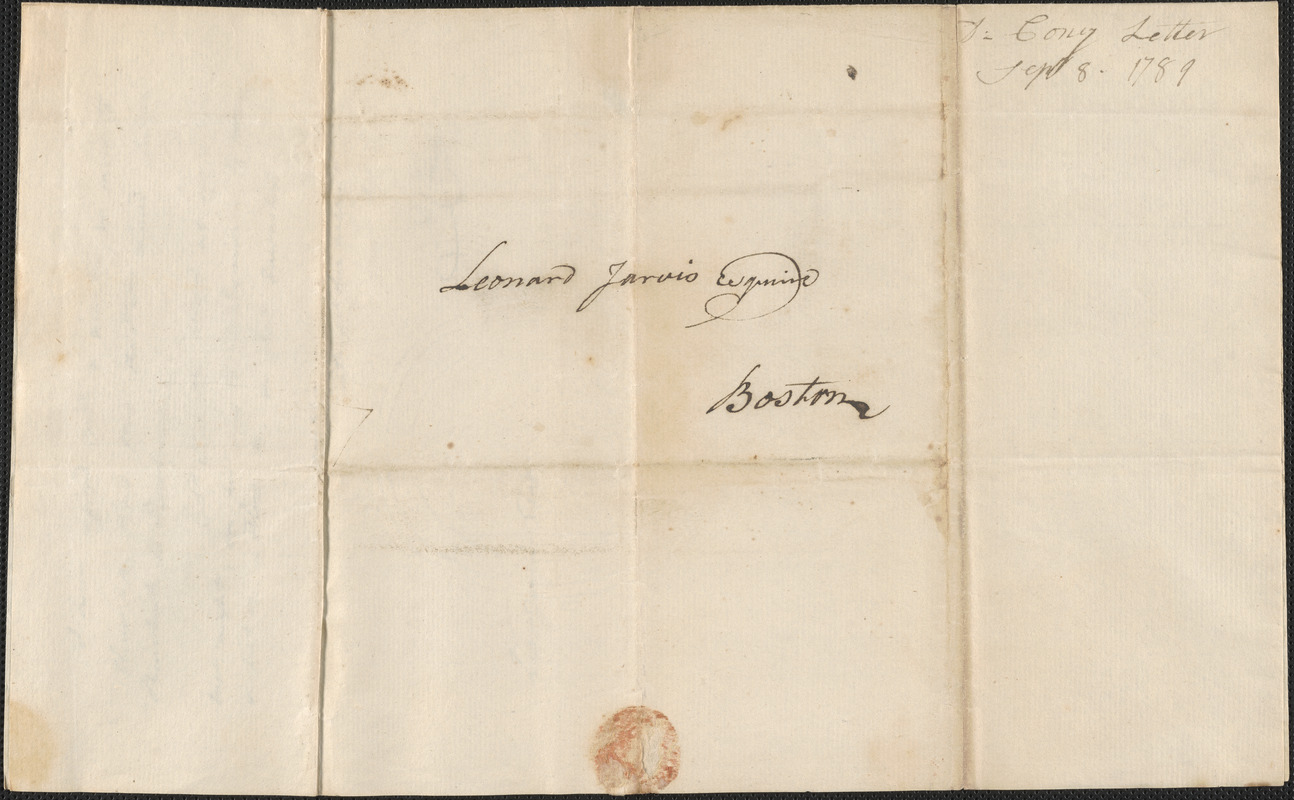 Leonard Jarvis Esquire
Boston
D: Cony Letter
Sep 8. 1789